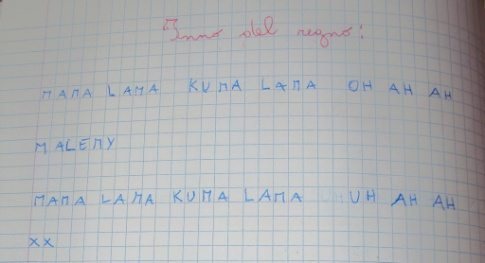 Inno del regno:
MAMA LAMA KUMA LAMA OH AH AH
MALEMY
MAMA LAMA KUMA LAMA UH AH AH
xx